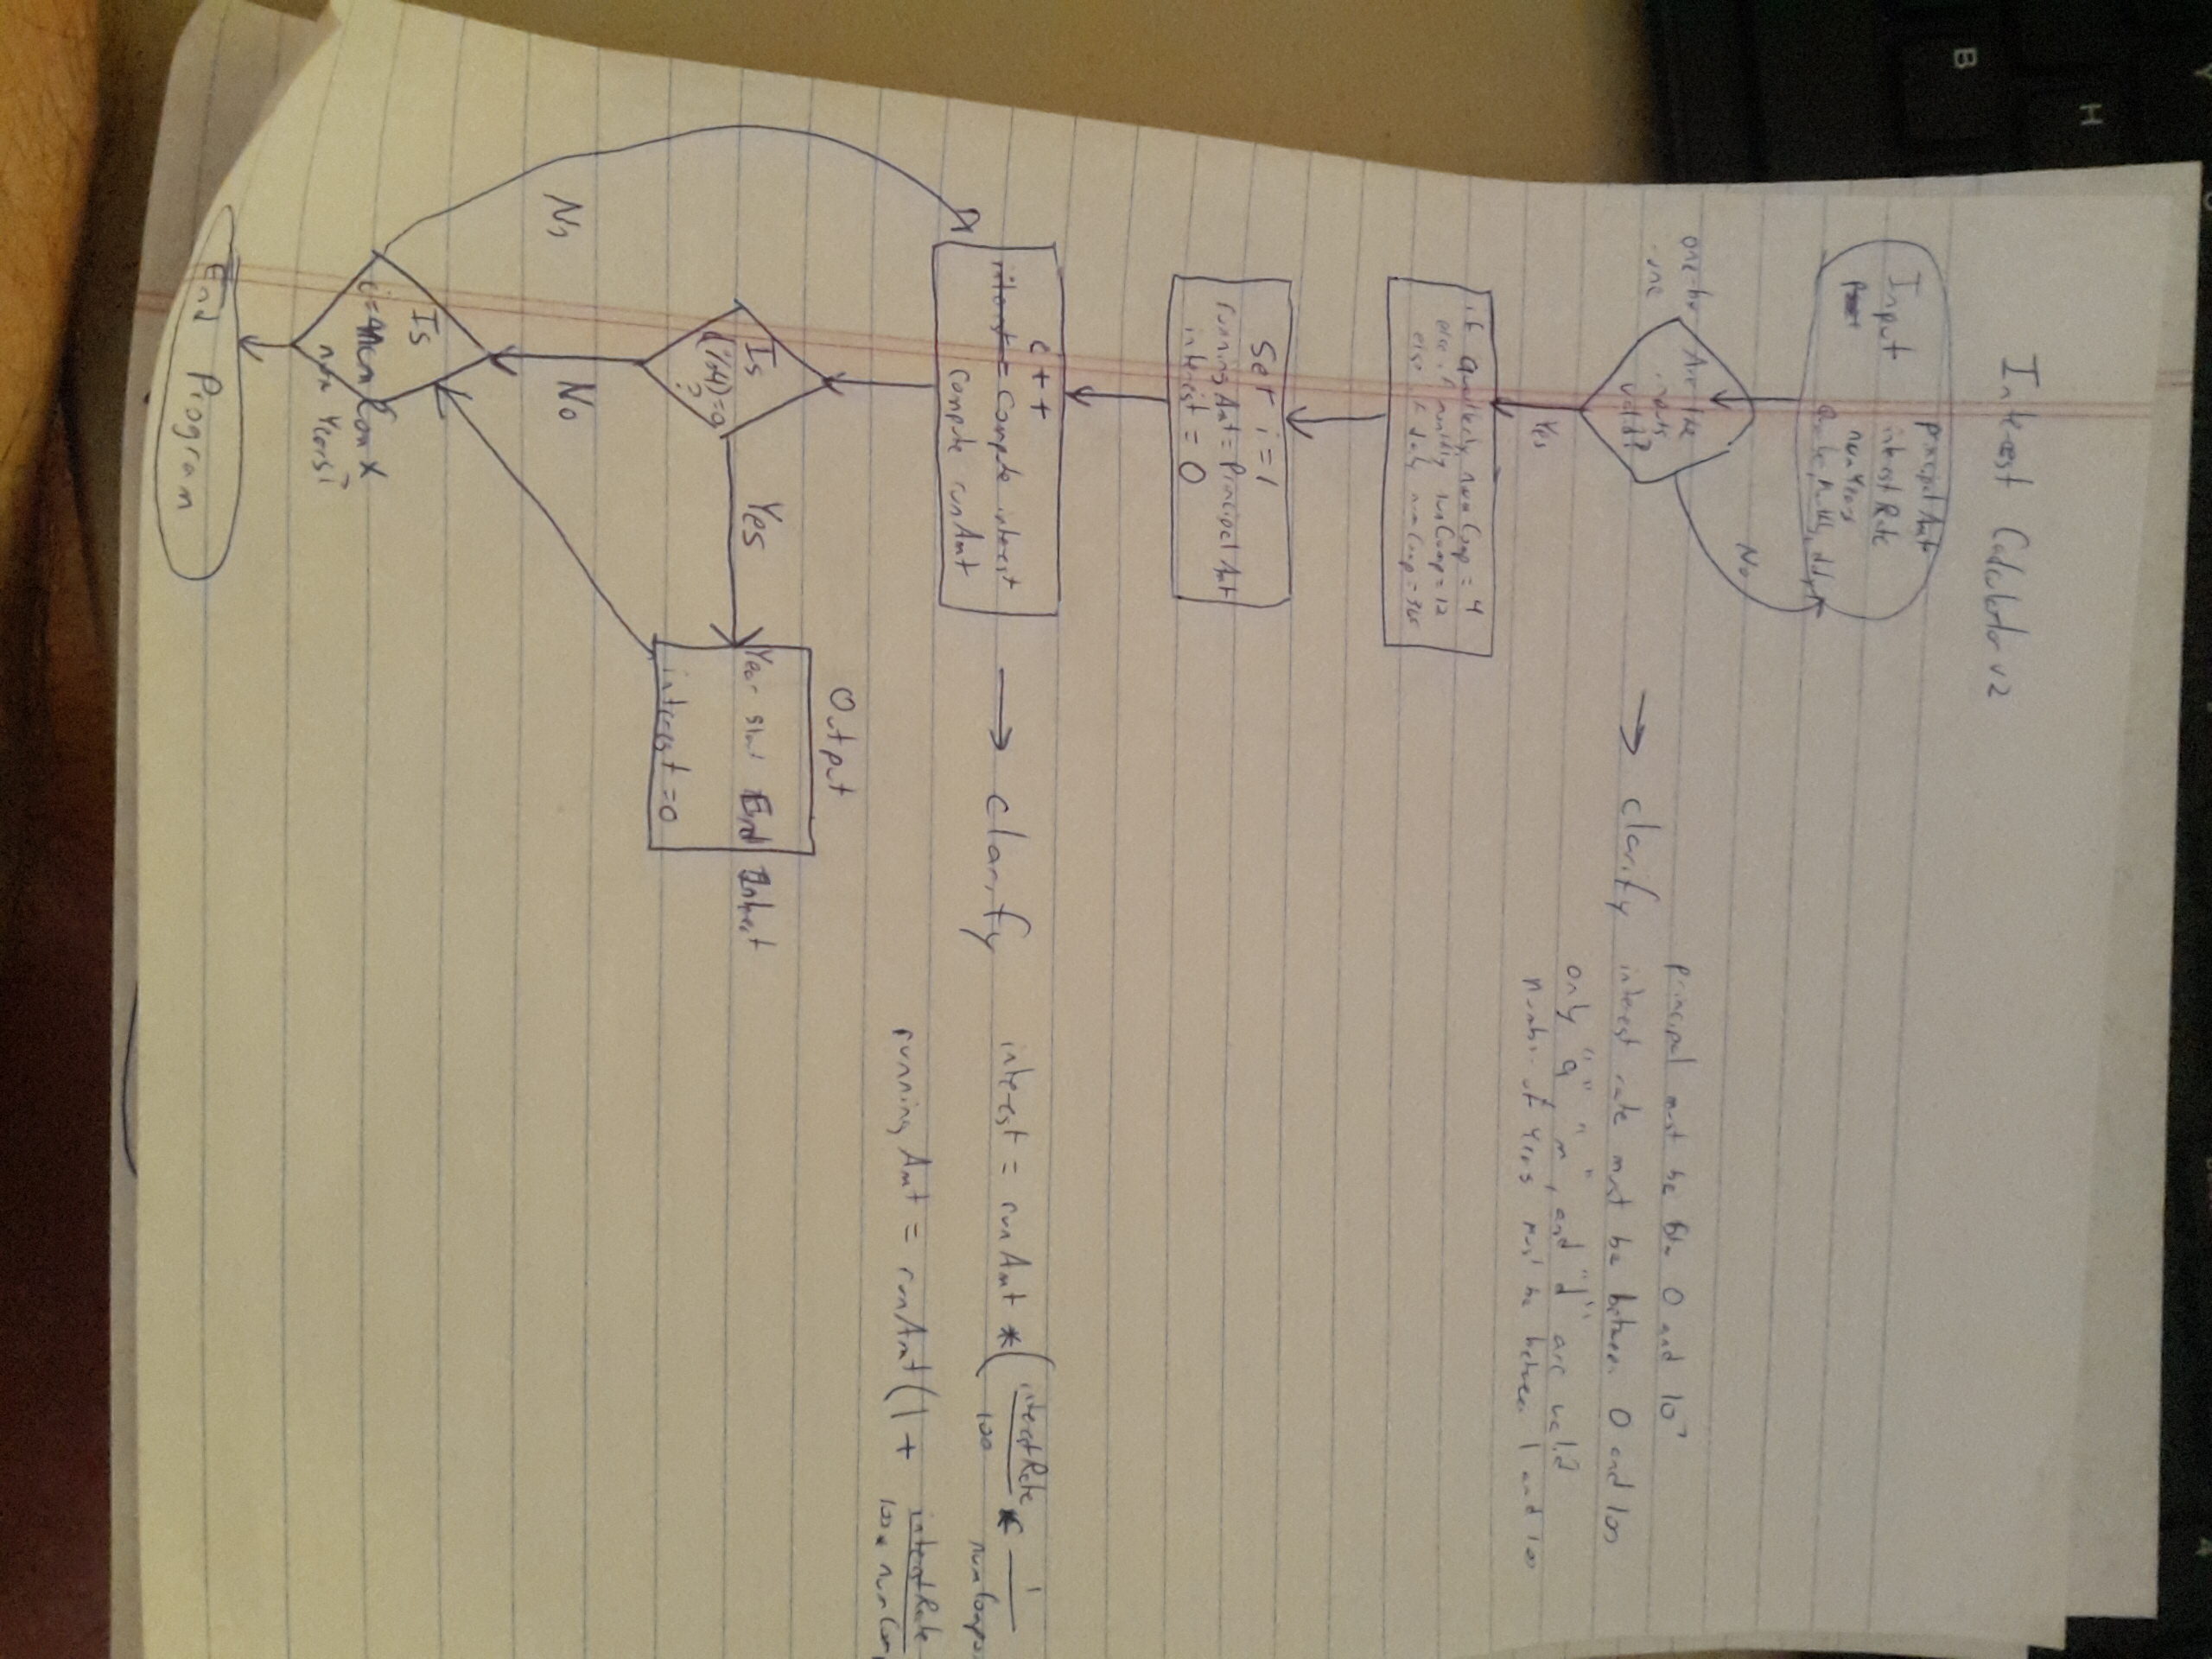 H
B
Interest Calculator v2
Input
principal Amt
interest Rate
num Years
Quarter, Monthly, daily
No
one-by
-one
Are the
inputs
valid?
→ clarify
principal must be btw 0 and 10
interest rate must be between 0 and 100
only "q", "m", and "d" are valid
number of years must be between 1 and 100
Yes
if Quarterly numComp = 4
else if monthly numComp = 12
else if daily numComp = 365
Set i = 1
running Amt = Principal Amt
interest = 0
c++
interest = Compute interest
compute runAmt
→ clarify
interest = runAmt * ( interestRate / 100 * 1 /
running Amt = runAmt ( 1 + interestRate / 100 *
Output
Is
(i%4)=0
?
Yes
Year start End Interest
interest = 0
No
No
Is
i = numCom X
num Years?
End Program